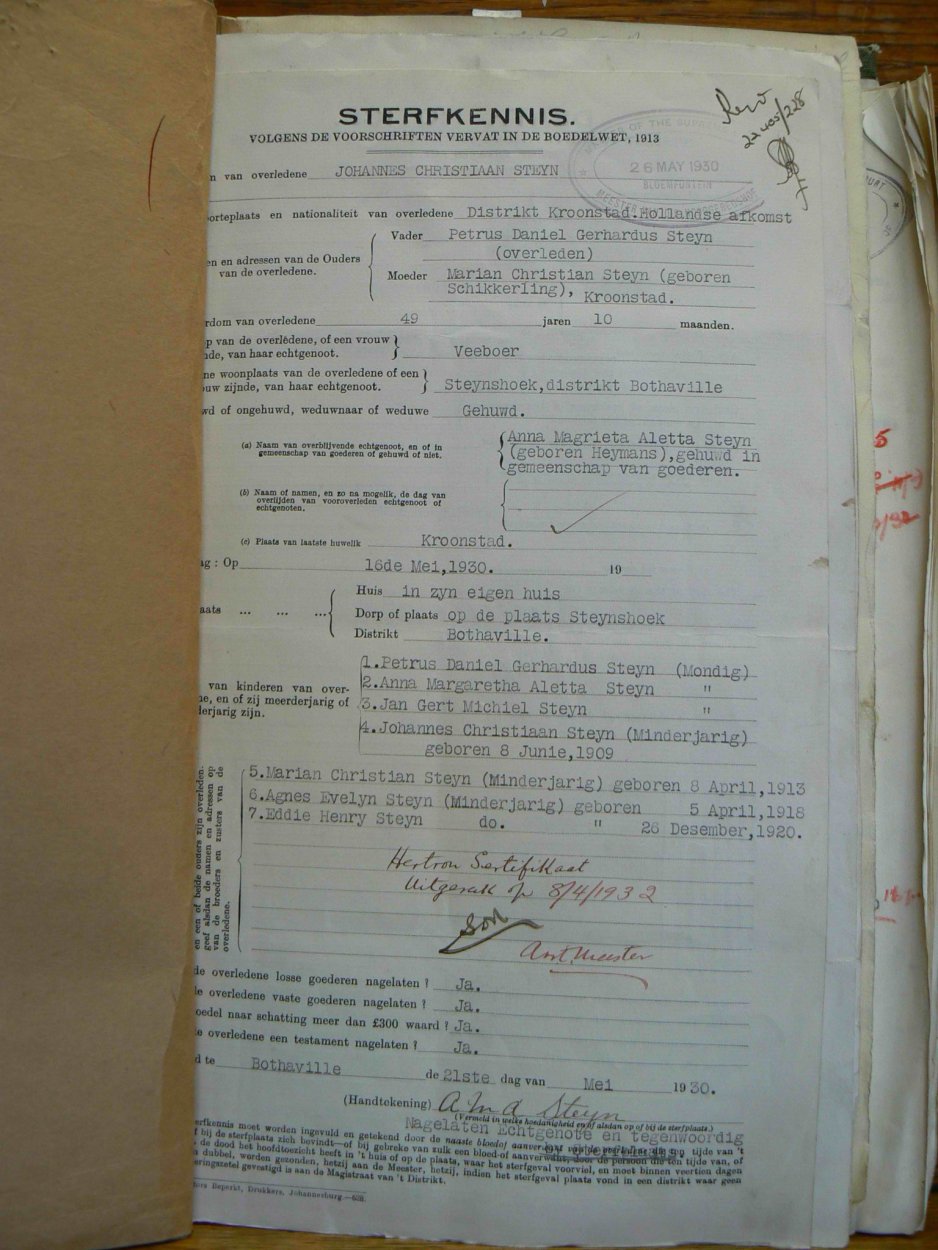 STERFKENNIS.
VOLGENS DE VOORSCHRIFTEN VERVAT IN DE BOEDELWET, 1913
OF THE SUPR
26 MAY 1930
BLOEMFONTEIN
MEESTER
van overledene JOHANNES CHRISTIAAN STEYN
orteplaats en nationaliteit van overledene Distrikt Kroonstad.Hollandse afkomst
en en adressen van de Ouders van de overledene.
Vader Petrus Daniel Gerhardus Steyn
(overleden)
Moeder Marian Christian Steyn (geboren
Schikkerling), Kroonstad.
rdom van overledene 49 jaren 10 maanden.
p van de overledene, of een vrouw
nde, van haar echtgenoot. Veeboer
ne woonplaats van de overledene of een
uw zijnde, van haar echtgenoot. Steynshoek,distrikt Bothaville
wd of ongehuwd, weduwnaar of weduwe Gehuwd.
(a) Naam van overblijvende echtgenoot, en of in
gemeenschap van goederen of gehuwd of niet.
Anna Magrieta Aletta Steyn
(geboren Heymans),gehuwd in
gemeenschap van goederen.
(b) Naam of namen, en zo na mogelik, de dag van
overlijden van vooroverleden echtgenoot of
echtgenoten.
(c) Plaats van laatste huwelik Kroonstad.
ag: Op 16de Mei,1930. 19
aats ... ... ...
Huis in zyn eigen huis
Dorp of plaats op de plaats Steynshoek
Distrikt Bothaville.
van kinderen van over-
ne, en of zij meerderjarig of
derjarig zijn.
1.Petrus Daniel Gerhardus Steyn (Mondig)
2.Anna Margaretha Aletta Steyn "
3.Jan Gert Michiel Steyn "
4.Johannes Christiaan Steyn (Minderjarig)
geboren 8 Junie,1909
5.Marian Christian Steyn (Minderjarig) geboren 8 April,1913
6.Agnes Evelyn Steyn (Minderjarig) geboren 5 April,1918
7.Eddie Henry Steyn do. " 26 Desember,1920.
en een of beide ouders zijn overleden.
geef alsdan de namen en adressen op
van de broeders en zusters van de
overledene.
Sertifikaat
op 8/4/1932
Meester
de overledene losse goederen nagelaten? Ja.
de overledene vaste goederen nagelaten? Ja.
oedel naar schatting meer dan £300 waard? Ja.
e overledene een testament nagelaten? Ja.
d te Bothaville de 21ste dag van Mei 1930.
(Handtekening) A M A Steyn
(Vermeld in welke hoedanigheid en of alsdan op of bij de sterfplaats.)
Nagelaten Echtgenote en tegenwoordig
by overlyden.
erfkennis moet worden ingevuld en getekend door de naaste bloed-
of aanverwant
tijde van 't
f bij de sterfplaats zich bevindt—of bij gebreke van zulk een bloed-of aanverwant, door de persoon die ten tijde van, of
de dood het hoofdtoezicht heeft in 't huis of op de plaats, waar het sterfgeval voorviel, en moet binnen veertien dagen
dubbel, worden gezonden, hetzij aan de Meester, hetzij, indien het sterfgeval plaats vond in een distrikt waar geen
eringszetel gevestigd is aan de Magistraat van 't Distrikt.
Beperkt, Drukkers, Johannesburg.